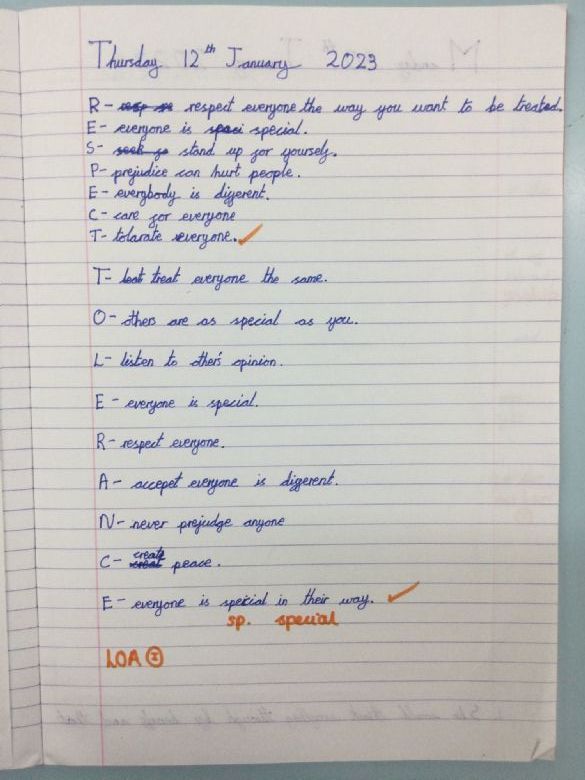 Thursday 12th January 2023
R - respect everyone the way you want to be treated.
E - everyone is special.
S - stand up for yourself.
P - prejudice can hurt people.
E - everybody is different.
C - care for everyone
T - tolarate everyone.
T - treat everyone the same.
O - others are as special as you.
L - listen to other's opinion.
E - everyone is special.
R - respect everyone.
A - accepet everyone is different.
N - never prejudge anyone
C - create peace.
E - everyone is spekial in their way.
sp. special
LOA I